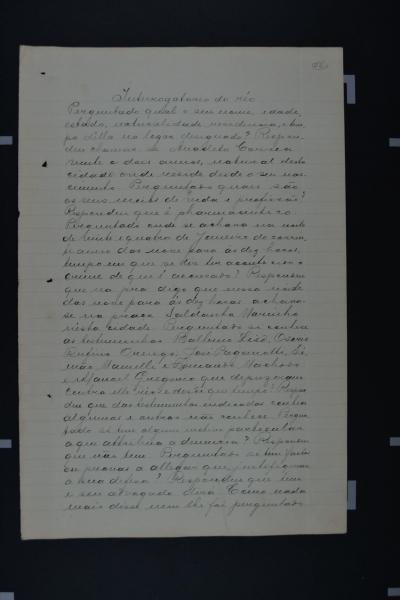 Interrogatorio do réo
Perguntado qual o seu nome, idade,
estado, naturalidade, residencia, e tem-
po della no logar designado? Respon-
deu chamar-se Anacleto Corrêa
vinte e dois annos, natural desta
cidade onde reside desde o seu nas-
cimento. Perguntado quaes são
os seus meios de vida e profissão?
Respondeu que é pharmaceutico.
Perguntado onde se achava na noite
de vinte e quatro de Janeiro do corren-
te anno das nove para às dez horas,
tempo em que se diz ter acontecido o
crime de que é accusado? Respondeu
que na pra digo que nessa noite
das nove para às dez horas achava-
se na praça Saldanha Marinho
nesta cidade. Perguntado se conhece
as testemunhas Balbino Dião, Oscar
José Paganelli, Si-
mão e Fernando Machado
e Manoel Gregorio que depuzeram
contra elle neste
deu que das testemunhas conhece
algumas e outras não conhece. Pergun-
tado se tem algum motivo particular
a que attribua a denuncia? Respondeu
que não tem. Perguntado se tem factos
ou provas a allegar que justifiquem
a sua defesa? Respondeu que tem
e seu advogado dirá. Como nada
mais disse nem lhe foi perguntado